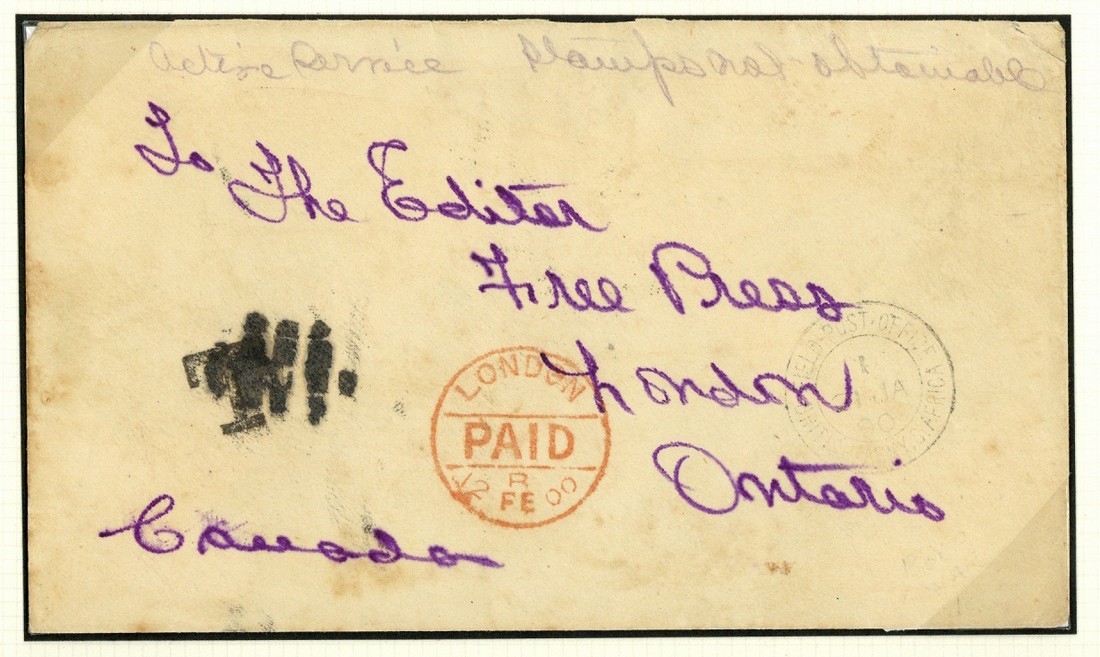 Active Service Stamps not obtainable
To The Editer
Free Press
London
Ontario
Canada
LONDON
PAID
R
FE 00
FIELD-POST-OFFICE
JA
00
S. AFRICA